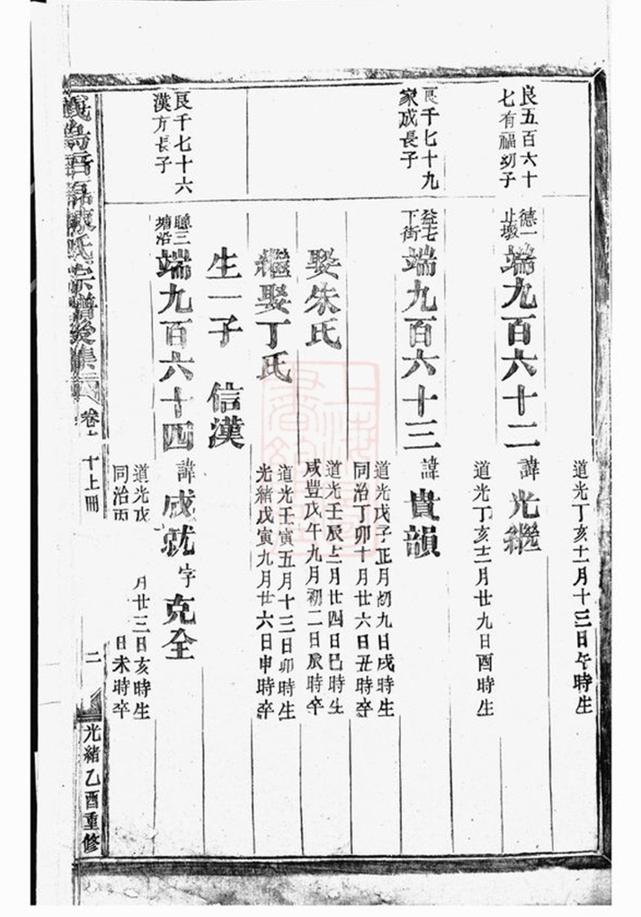 道光丁亥十一月十三日午時生
良五百六十
七有福幼子
德一
端九百六十二 諱光繼
道光丁亥十二月廿九日酉時生
良千七十九
家成長子
益七
下街
端九百六十三 諱貴韻
道光戊子正月初九日戌時生
同治丁卯十月廿六日丑時卒
娶朱氏
道光壬辰七月廿四日巳時生
咸豐戊午九月初二日辰時卒
繼娶丁氏
道光壬寅五月十三日卯時生
光緒戊寅九月廿六日申時卒
生一子 信漢
良千七十六
漢方長子
聽三
塘沿
端九百六十四 諱成就 字克全
道光戊 月廿三日亥時生
同治丙 日未時卒
陳氏宗譜後集
卷 十上冊
二
光緒乙酉重修